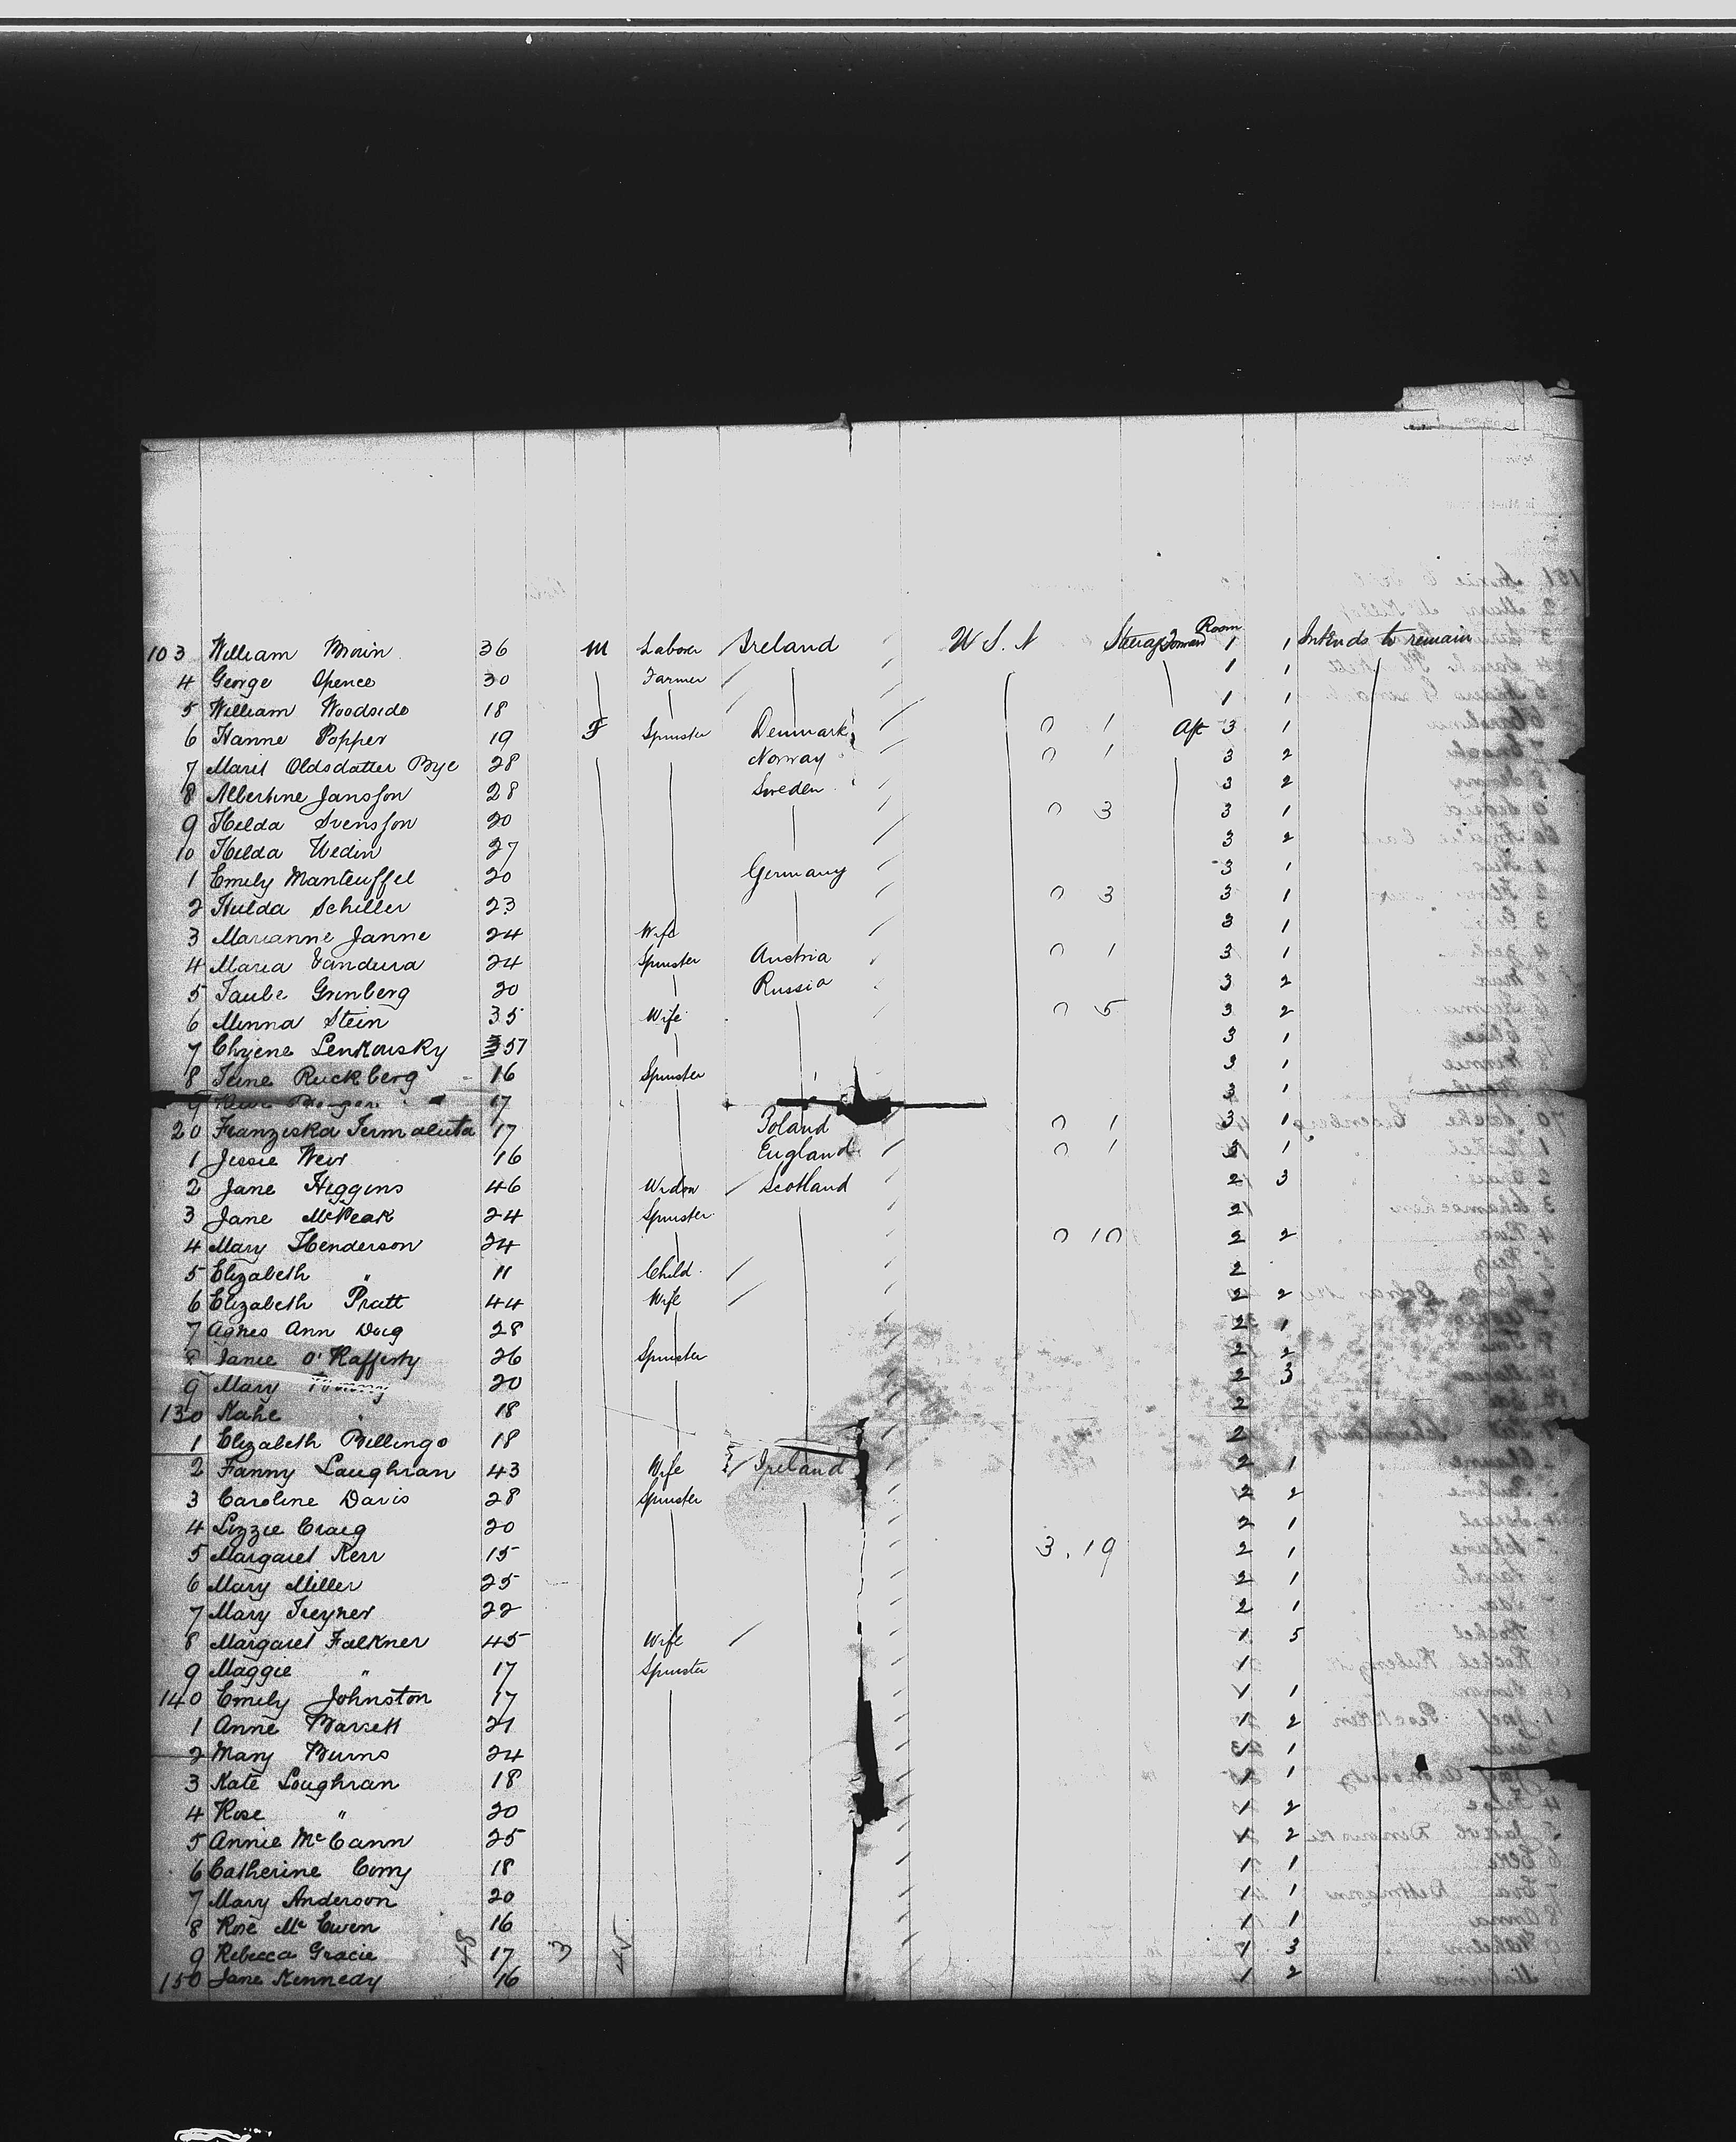 Room
103 William Brown 36 M Labover Ireland W S. N Steerage Forward 1 1 Intends to remain
4 George Spence 30 Farmer 1 1
5 William Woodside 18 1 1
6 Hanne Popper 19 F Spinster Denmark 0 1 Aft 3 1
7 Marit Oldsdatter Bye 28 Norway 0 1 3 2
8 Albertine Jansson 28 Sweden 3 2
9 Hilda Svensson 20 0 3 3 1
10 Hilda Wedin 27 3 2
1 Emily Manteuffel 20 Germany 3 1
2 Hulda Schiller 23 0 3 3 1
3 Marianne Janne 24 Wife 3 1
4 Maria Vandura 24 Spinster Austria 0 1 3 1
5 Taube Grinberg 20 Russia 3 2
6 Minna Stein 35 Wife 0 5 3 2
7 Chyene Lenkousky 57 3 1
8 Ruckberg 16 Spinster 3 1
9 17 3 1
20 Franziska 17 Poland 0 1 3 1
1 Jessie Weir 16 England 0 1 3 1
2 Jane Higgins 46 Widow Scotland 2 3
3 Jane McPeak 24 Spinster 2
4 Mary Henderson 24 0 10 2 2
5 Elizabeth " 11 Child 2
6 Elizabeth Pratt 44 Wife 2 2
7 Agnes Ann Doig 28 2 1
8 Janie O'Rafferty 26 Spinster 2 2
9 Mary 20 2 3
130 Kate " 18 2
1 Elizabeth Billings 18 2
2 Fanny Laughran 43 Wife Ireland 2 1
3 Caroline Davis 28 Spinster 2 2
4 Lizzie Craig 20 2 1
5 Margaret Kerr 15 3.19 2 1
6 Mary Miller 25 2 1
7 Mary Treyner 22 2 1
8 Margaret Falkner 45 Wife 1 5
9 Maggie " 17 Spinster 1
140 Emily Johnston 17 1 1
1 Anne Barrett 21 1 2
2 Mary Burns 24 1 1
3 Kate Loughran 18 1 1
4 Rose " 20 1 2
5 Annie McCann 25 1 2
6 Catherine Corry 18 1 1
7 Mary Anderson 20 1 1
8 Rose McEwen 16 1 1
9 Rebecca Gracie 17 1 3
150 Jane Kennedy 16 1 2
48 3 45